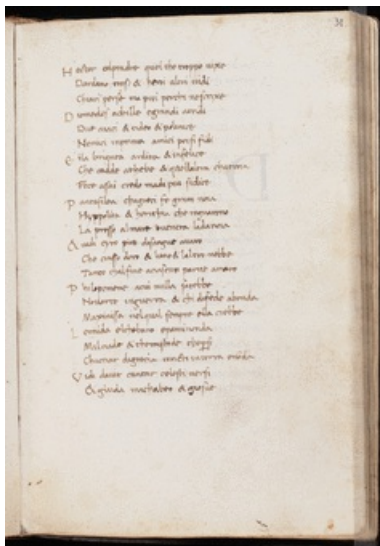 31
Hector colpadre quei che troppo vixe
Dardano & heroi altri vidi
Chiari perse ma piu perchi nescrixe
Diomedes achille egrandi atridi
Due aiaci & tideo & polinice
Nemici imprima amici poi si fidi
E la brigata ardita & infelice
Che cadde athebe & quellaltra chatroia
Fece assai credo madi piu sidice
Pantasilea chagreci fe gran noia
Hyppolita & horithia che regnarono
La presso almare entra ladanoia
& vidi cyro piu disangue avaro
Che crasso doro & luno & laltro nebbe
Tanto chalfine parve amaro
Philopomene acui nulla sarebbe
Nova arte inguerra & chi difede abonda
Maxinissa nelqual sempre ella crebbe
Leonida elthebano epaminunda
Malciade & themistode
Chacciar digrecia vinti interra enonda
Vidi david cantar celesti versi
& giuda machabeo & giosue